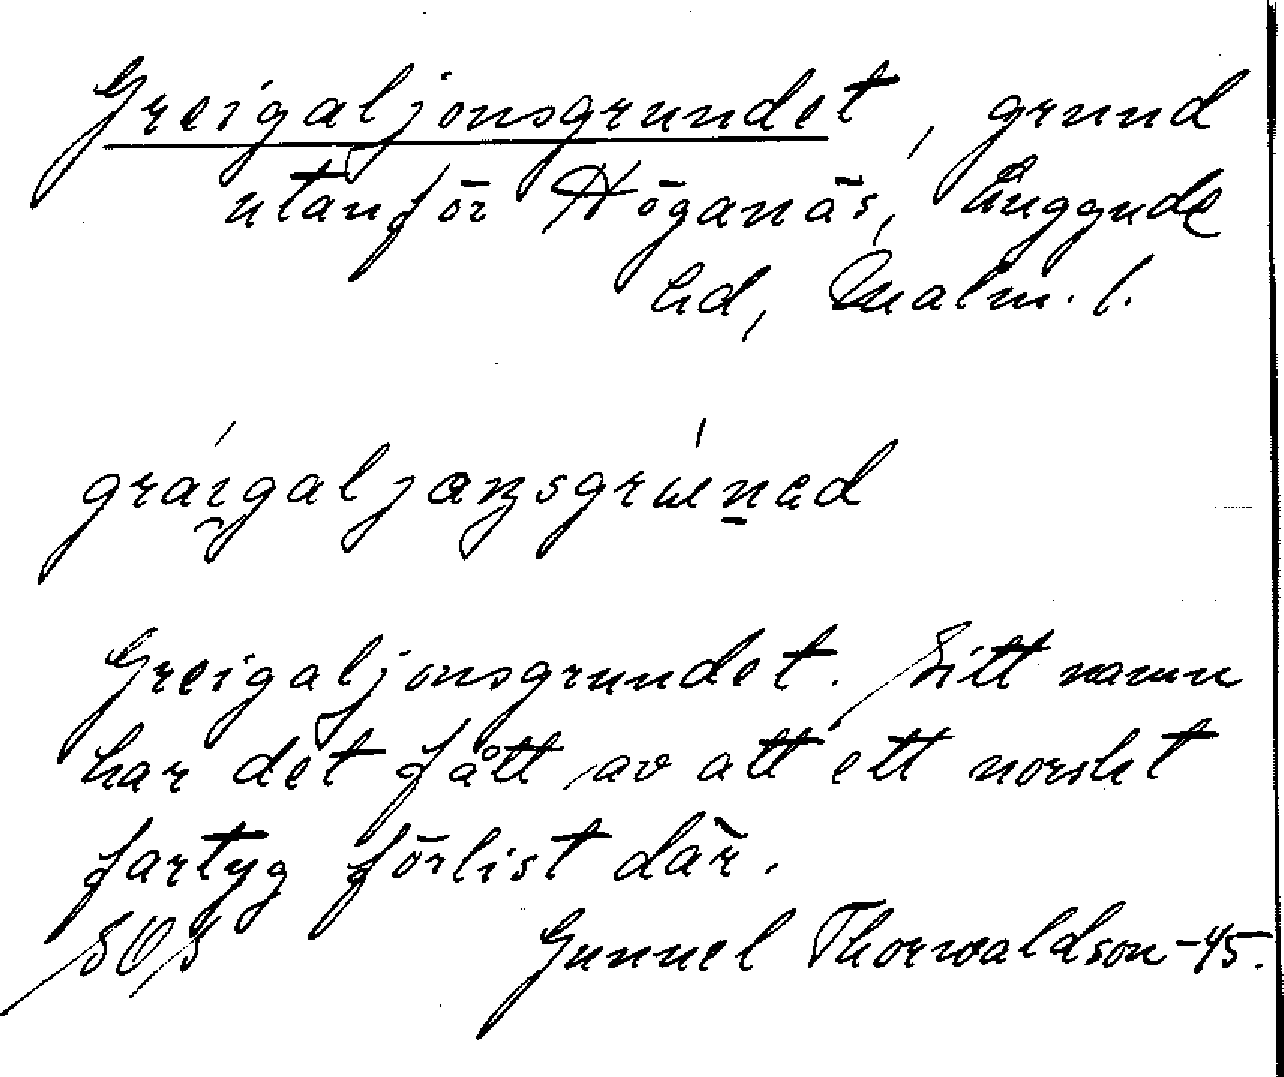 Greigaljonsgrundet, grund
utanför Höganäs, Luggude
hd, Malm. l.
Greigaljonsgrundet. Sitt namn
har det fått av att ett norskt
fartyg förlist där.
SOS Gunnel Thorwaldson -45.